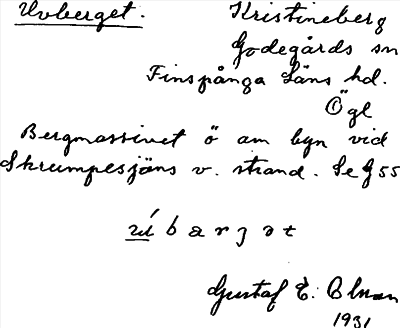 Uvberget. Kristineberg
Godegårds sn
Finspånga läns hd.
Ögl
Bergmassivet ö om byn vid
Skrumpesjöns v. strand. Se G 55
bærjət
Gustaf E. Olsson
1931